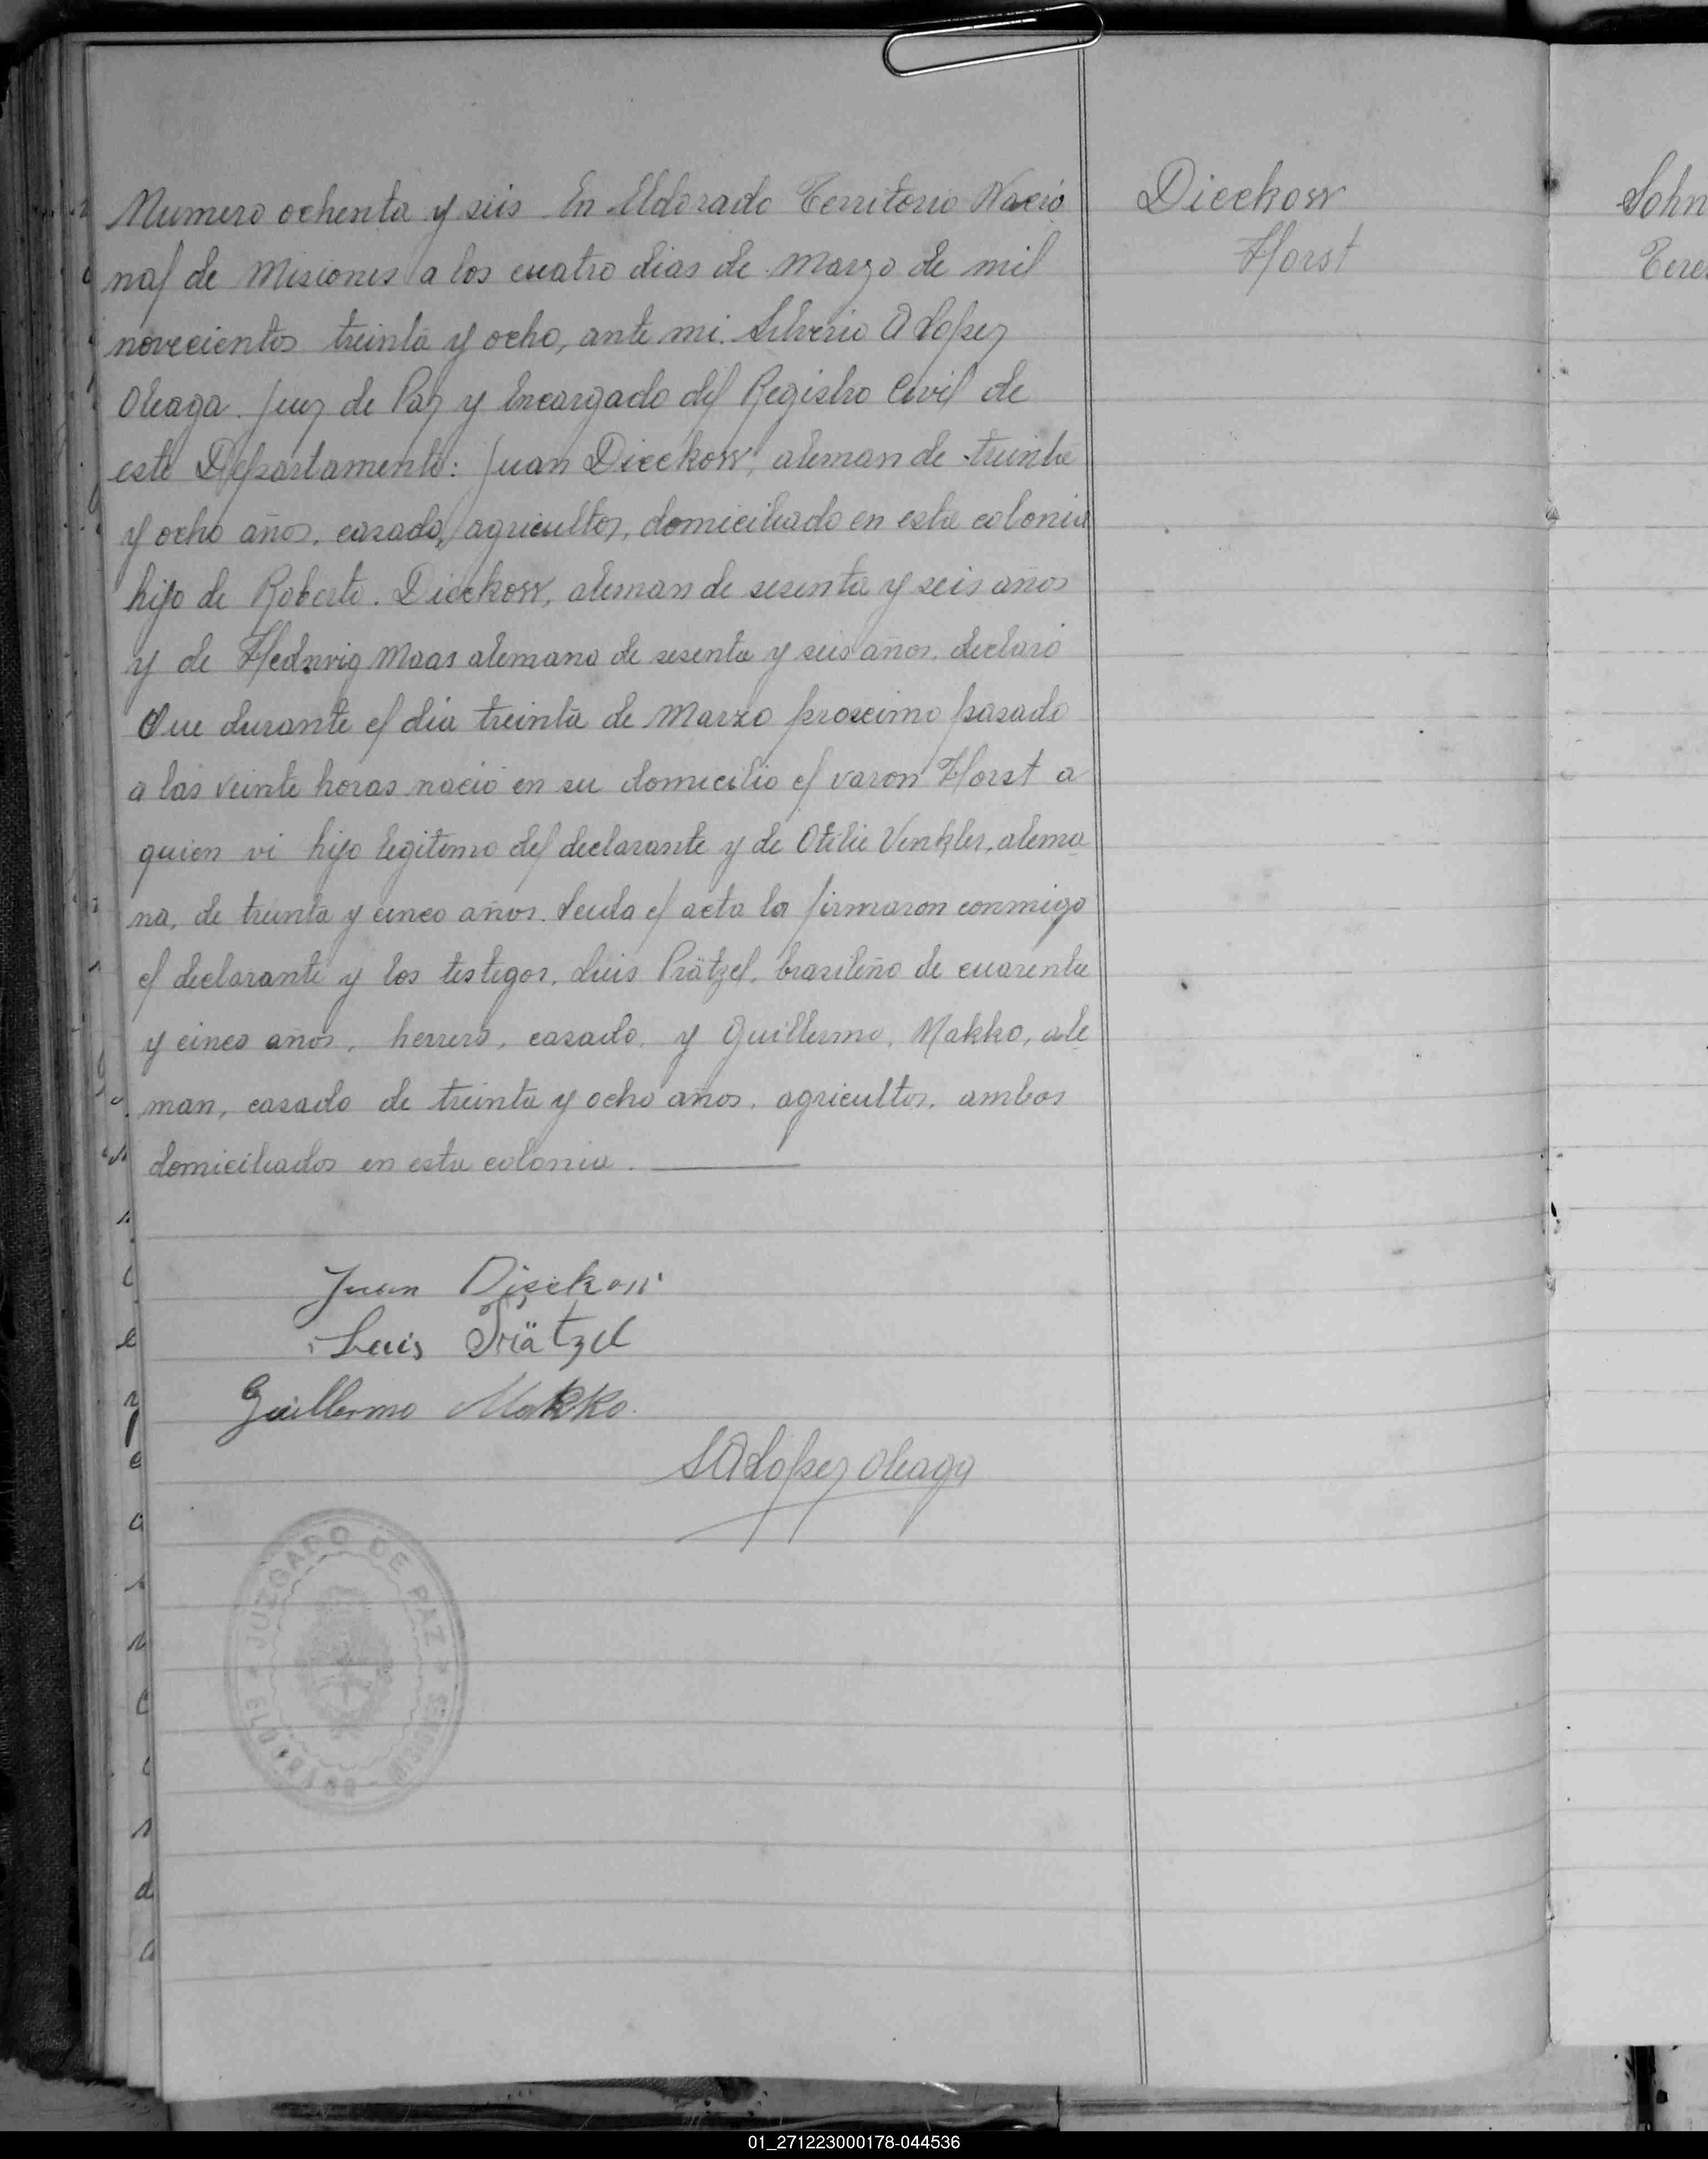 Numero ochenta y seis En Eldorado Territorio Nacio
nal de Misiones a los cuatro dias de Marzo de mil
novecientos treinta y ocho, ante mi. Silverio A Lopez
Oleaga. Juez de Paz y Encargado del Registro Civil de
este Departamento: Juan Dieckow, aleman de treinta
y ocho años, casado, agricultor, domiciliado en esta colonia
hijo de Roberto. Dieckow, aleman de sesenta y seis años
y de Hedwig Maas alemana de sesenta y seis años. declaró
Que durante el dia treinta de Marzo proximo pasado
a las veinte horas nació en su domicilio el varon Horst a
quien vi hijo legitimo del declarante y de Otilie Vinkler, alema
na, de treinta y cinco años. Leida el acta la firmaron conmigo
el declarante y los testigos, Luis Prätzel, brasileño de cuarenta
y cinco años, herrero, casado, y Guillermo, Makko, ale
man, casado de treinta y ocho años, agricultor, ambos
domiciliados en esta colonia.
Dieckow
Horst
Juan Dieckow
Luis Prätzel
Guillermo Makko.
SALopez Oleaga
JUZGADO DE PAZ
ELDORADO
John
Tere
01_271223000178-044536